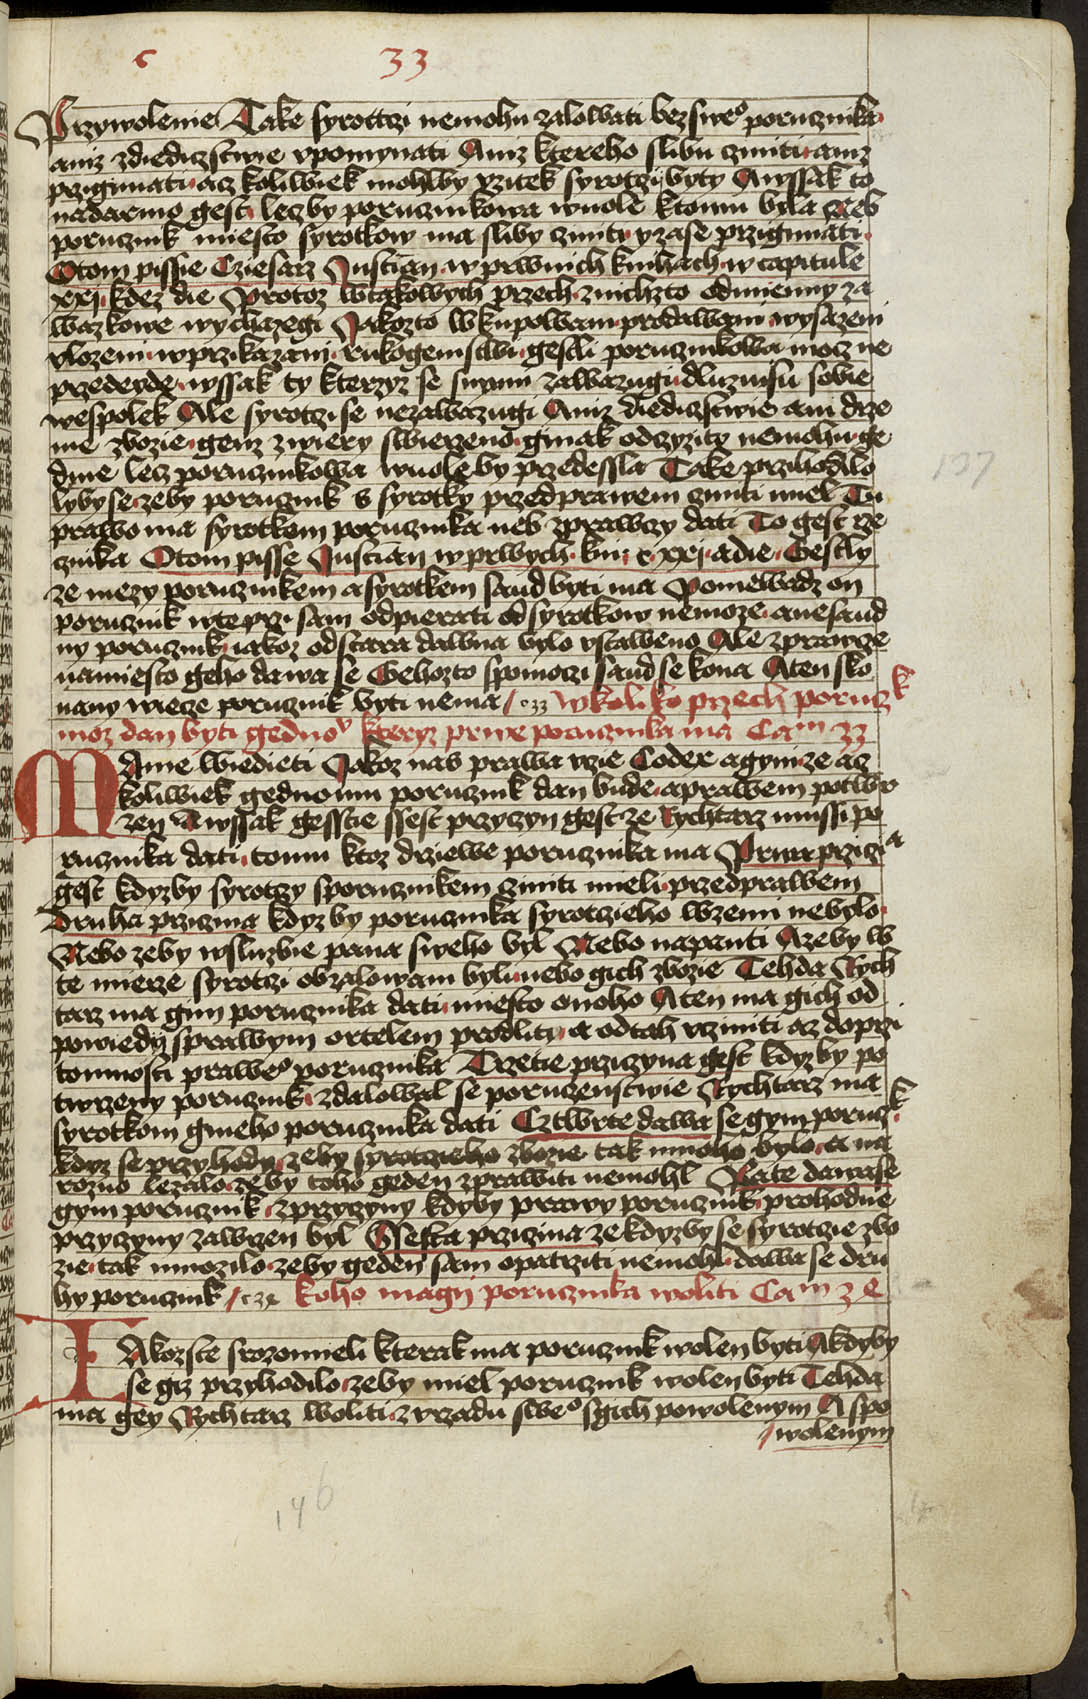 c 33
Przywolenie Take syrottzi nemohu zalowati bezsweº porucznika
aniz zdiedicztwie vpomynati Aniz ktereho slibu cziniti aniz
przigimati acz koliwiek mohlby vzitek syrotczi byty Awssak to
nadarmo gest leczby porucznikowa wuole ktomu byla Neb
porucznik miesto syrotkow ma sliby cziniti y zase przigimati
Otom pissie Cziesarz Justian w prwnich knihach w capitule
xxj kdez die Protoz wtakowych przech znichzto odmienny za
wazkowe wychazegi Jakozto wkupowani prodawani wysazeni
vlozeni wprzikazani rukogemstwi gestli porucznikowa mocz ne
przedeyde wssak ty kterzyz se snymi zawazugi dluzni su sobie
wespolek Ale syrotczi se nezawazugi Aniz diediczstwie ani drze
nie zbozie genz zwiery swierzeno ginak odczyzity nemohu ge
dine lecz porucznikowa wuole by przedessla Take przihodilo
lyby se zeby porucznik s syrotky przed prawem cziniti miel Tu
prawo ma syrotkom porucznika neb zprawczy dati To gest rze
cznika Otom pisse Justian w prwych knih c xxj a die Gestly
ze mezy porucznikem a syrotkem saud byti ma Poniewadz on
porucznik wteprzi sam odpierati od syrotkow nemoze ane saud
ny porucznik iakoz odstara dawna bylo vstaweno Ale zprawcze
namiesto geho dawa se Gehozto spomoczi saud se kona Aten sko
nany wiecze porucznik byti nema / c 33 wkoliko przech porucz k
moz dan byti gednoº kteryz prwe porucznika ma Caᵐ 33
Mame wiedieti Jakoz nas prawa vczie Codex a gynize acz
koliwiek gednomu porucznik dan bude a prawem potwr
zen Awssak gesstie ssest przyczyn gest ze Rychtarz mussi po
rucznika dati tomu ktoz drziewe porucznika ma Prwa przicziᵃ
gest kdyzby syrotczy sporucznikem cziniti mieli przed prawem
Druha przicina kdyz by porucznika syrotczieho wzemi nebylo
Nebo zeby wsluzbie pana sweho byl Nebo napauti Azeby w
te mierze syrotczi obzalowani byli nebo gich zbozie Tehda Rych
tarz ma giny porucznika dati miesto onoho Aten ma gich od
powiedy sprawym ortelem prodliti a odtah vcziniti az do przi
tomnosti praweº porucznika Trzetie przicyna gest kdyz by po
twrzeny porucznik zdalowal se poruczenstwie Rychtarz ma
syrotkom gineho porucznika dati Cztwrte dawa se gym porucz k
kdyz se przyhody zeby syrotczieho zbozie tak mnoho bylo a na
rozno lezalo zeby toho geden zprawiti nemohl Pate dawa se
gym porucznik zprzyczyny kdyby prawy porucznik prohodne
przyczyny zawrzen byl Ssesta przicina ze kdyzby se syrotczie zbo
zie tak mnozilo zeby geden sam opatrziti nemohl dawa se dru
hy porucznik / c 34 koho magy porucznika woliti Caᵐ 34
IAkozste srozomieli kterak ma porucznik wolen byti Akdyby
se giz przyhodilo zeby miel porucznik wolen byti Tehda
ma gey Rychtarz woliti z vrzadu sweº sgich powolenym A spo
/wolenym
137
146